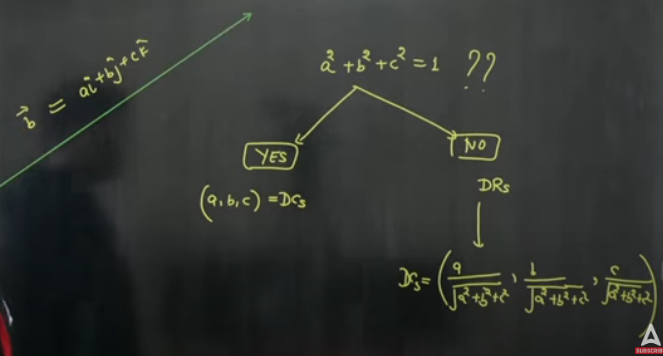 b⃗ = aî+bĵ+ck̂
a²+b²+c²=1 ??
YES
NO
(a,b,c) = DCs
DRs
DCs = (a/√(a²+b²+c²), b/√(a²+b²+c²), c/√(a²+b²+c²))
SUBSCRIBE